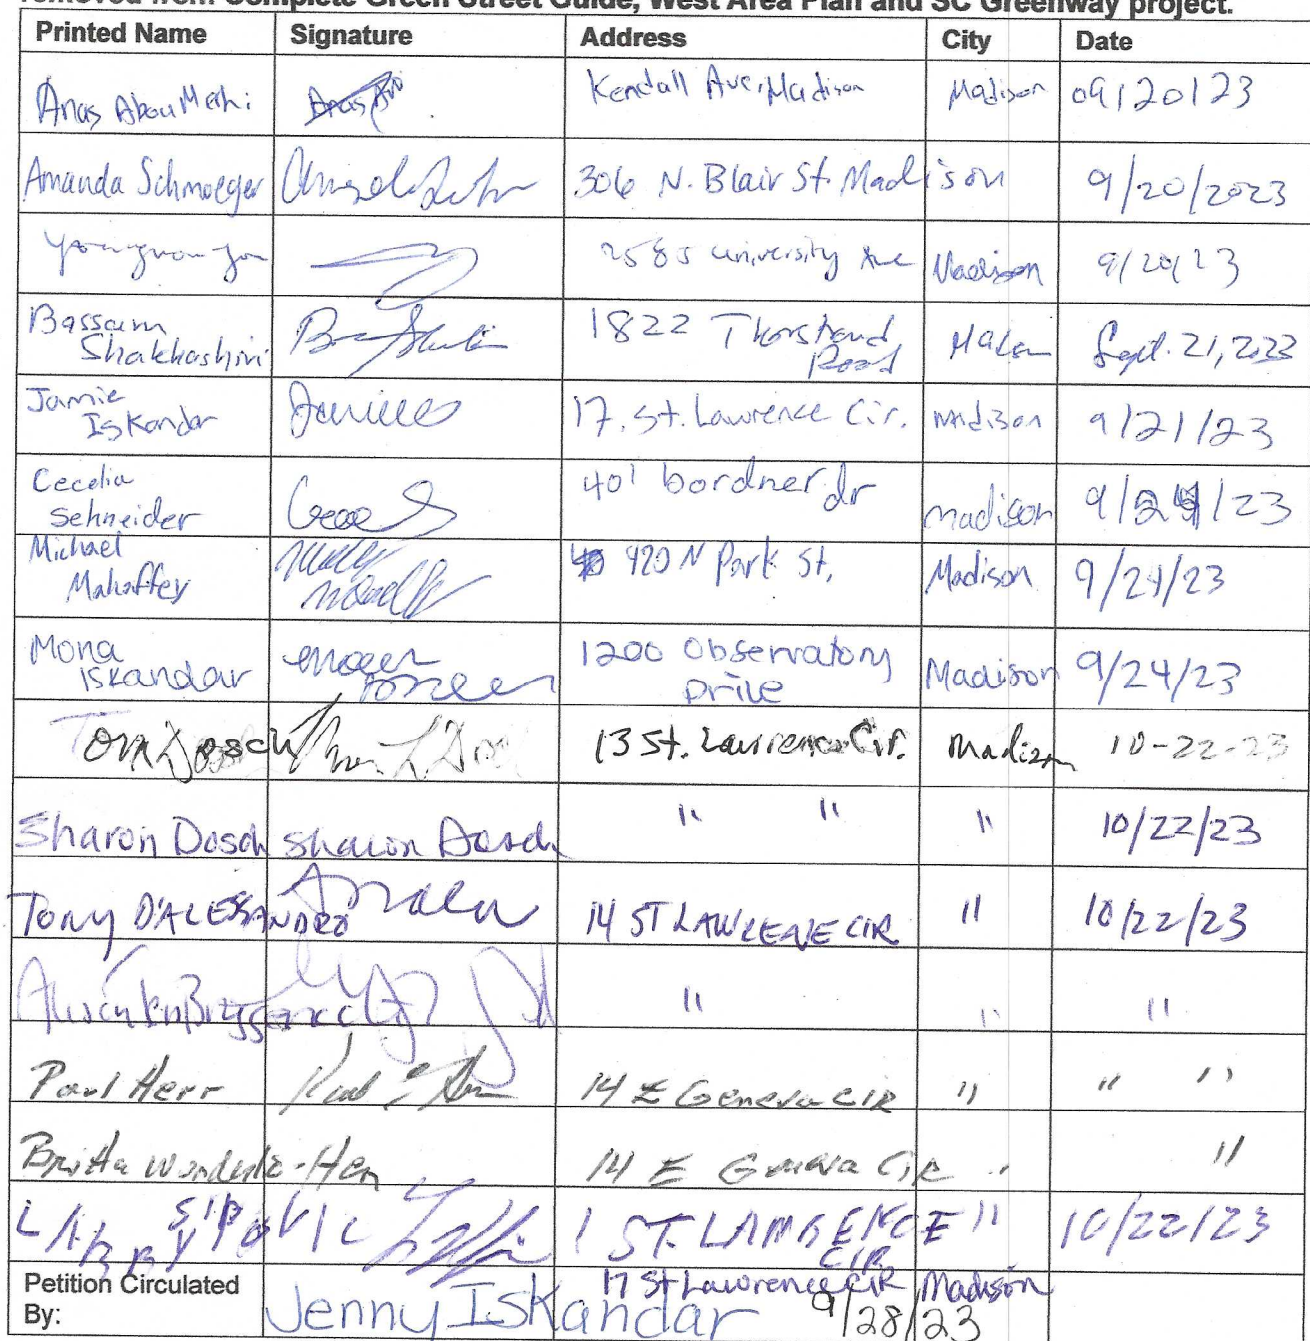 removed from Complete Green Street Guide, West Area Plan and SC Greenway project.
Printed Name Signature Address City Date
Anas Abou Mehi Kendall Ave, Madison Madison 09/20/23
Amanda Schmoeger 306 N. Blair St. Madison 9/20/2023
2585 University Ave Madison 9/20/23
Bassam Shakhashiri 1822 Thorstrand Road Sept. 21, 2023
Jamie Iskandar 17. St. Lawrence Cir. Madison 9/21/23
Cecelia Schneider 401 bordner dr madison
Michael Mahaffey 420 N Park St, Madison 9/24/23
Mona Iskandar 1200 Observatory Drive Madison 9/24/23
Tom Dosch 13 St. Lawrence Cir. Madison 10-22-23
Sharon Dosch Sharon Dosch " " " 10/22/23
TONY D'ALESSANDRO 14 ST LAWRENE CIR " 10/22/23
" " "
Paul Herr 14 E Geneva CIR " " "
Britta 14 E Geneva CIR " "
LARRY SIPOVIC 1 ST. LAWRENCE CIR " 10/22/23
Petition Circulated By: Jenny Iskandar 17 St Lawrence CIR Madison 9/28/23